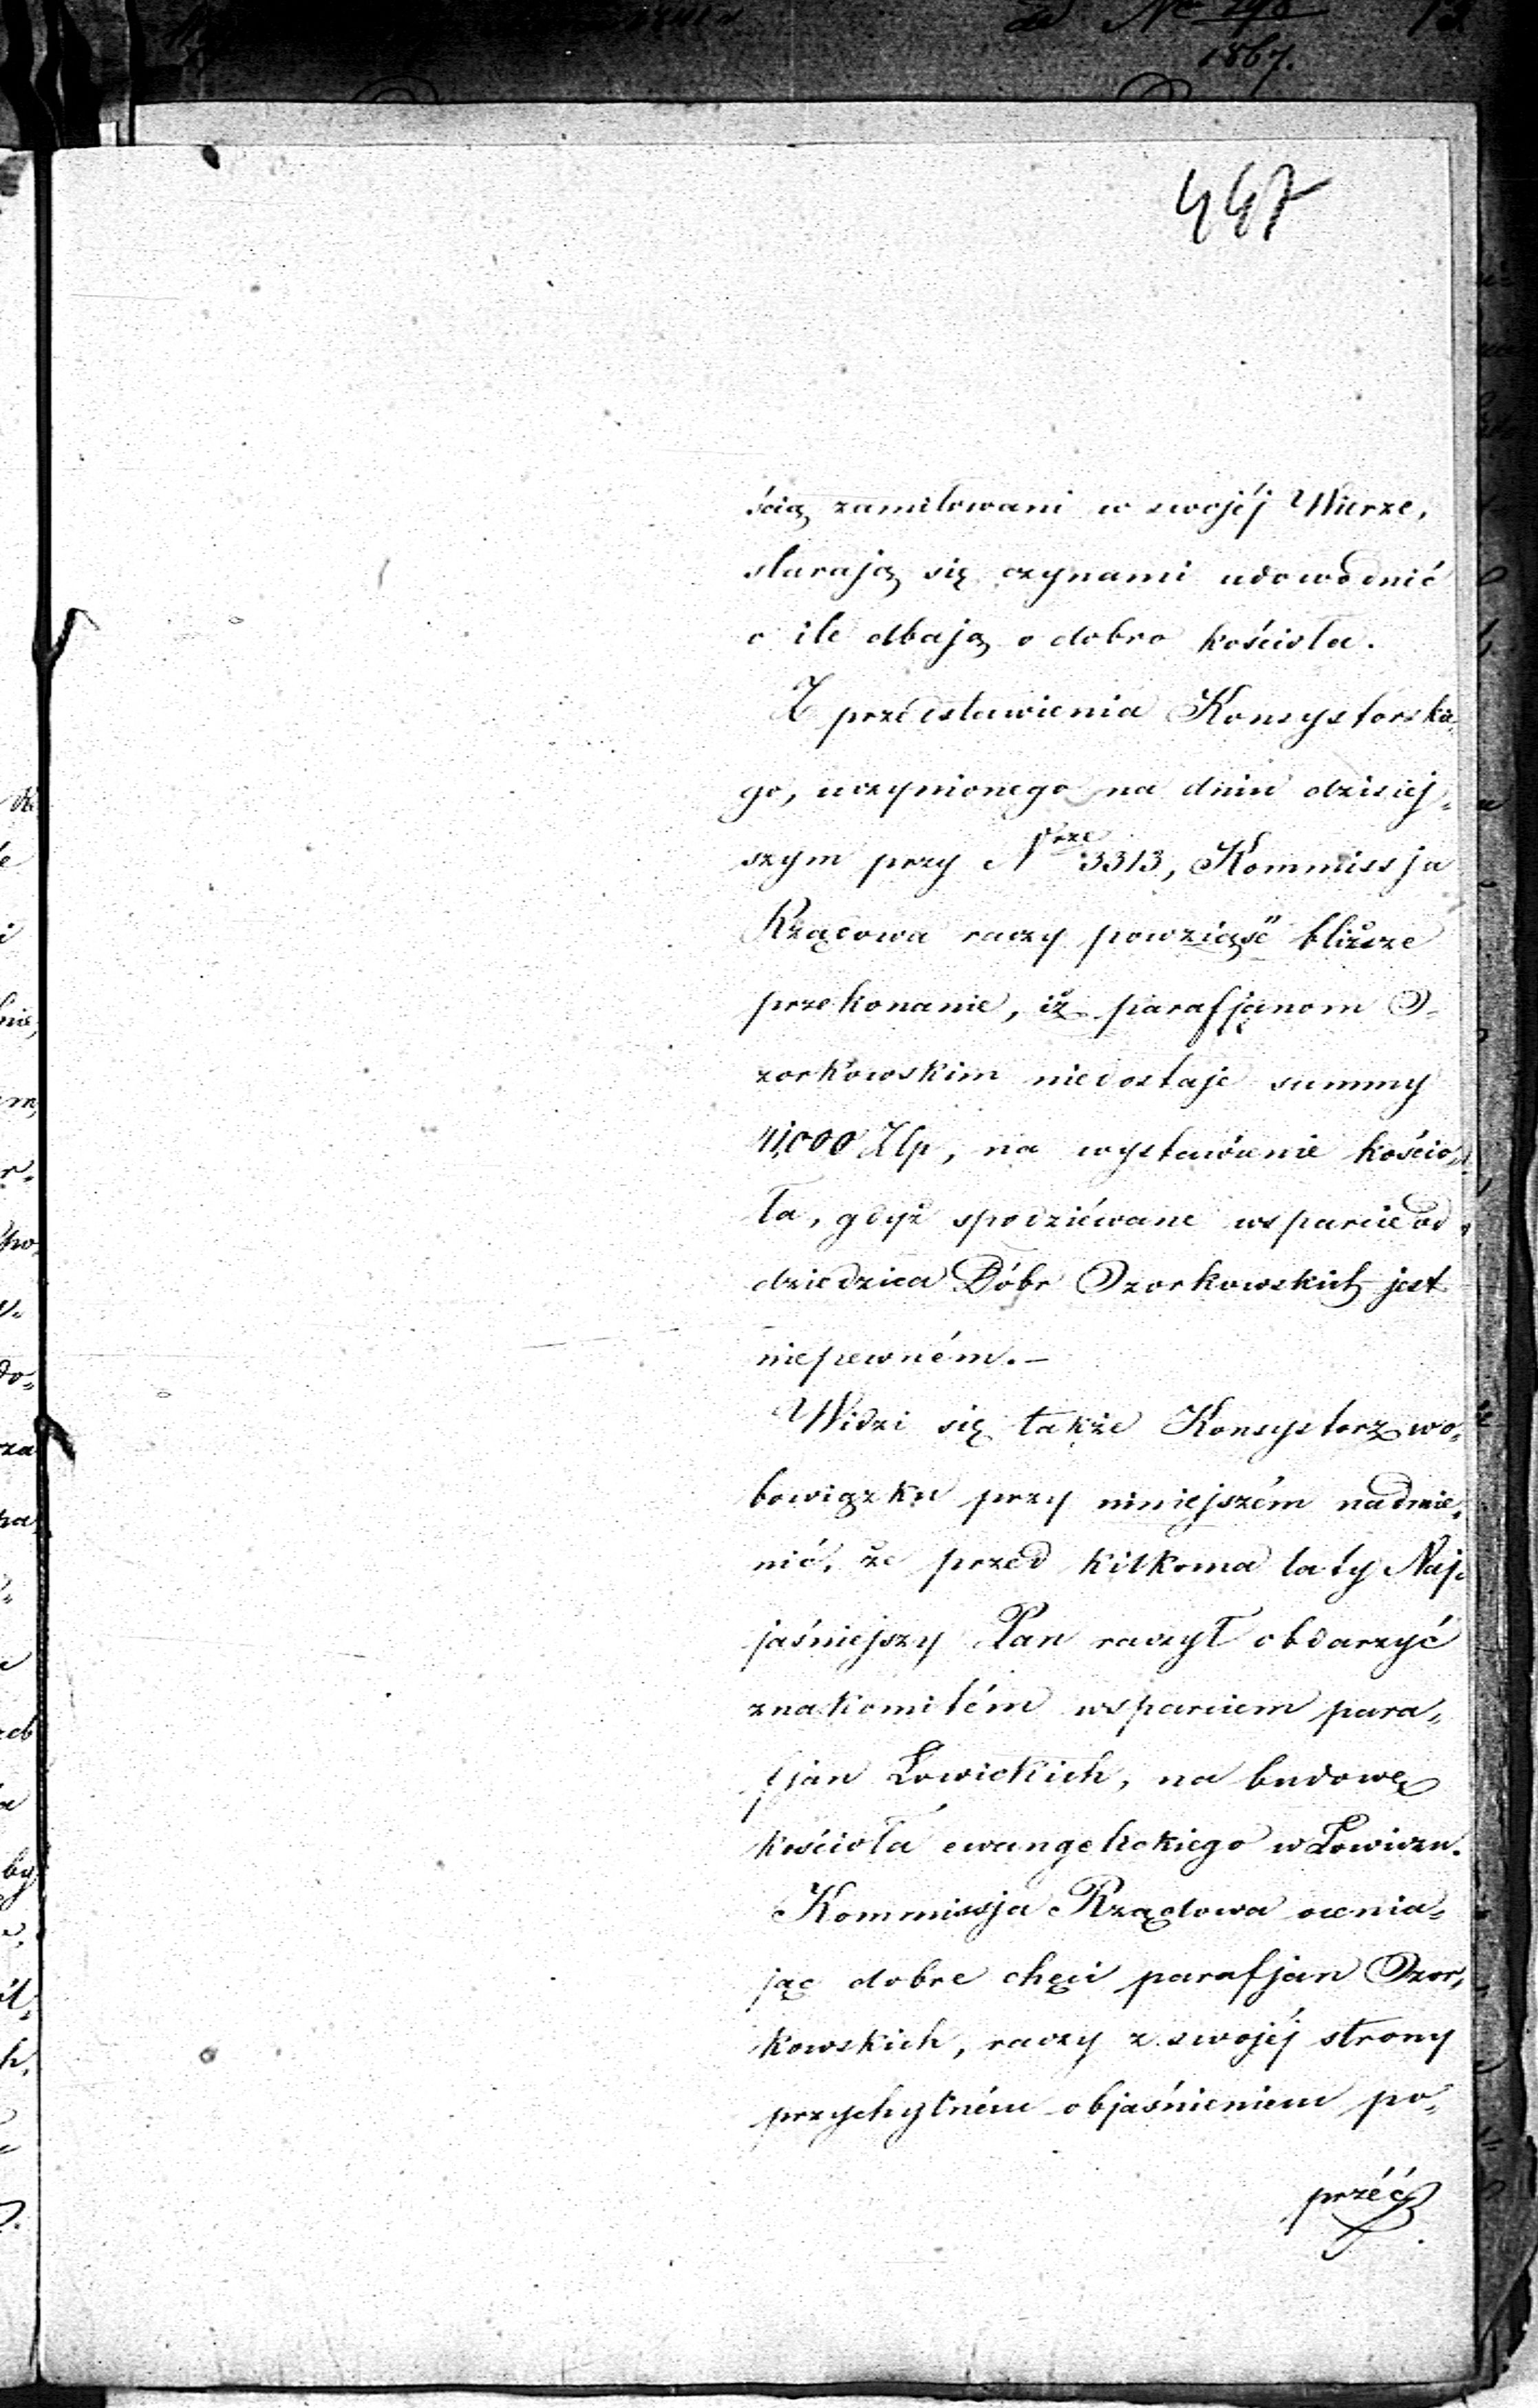 447
ścią zamiłowani w swojéj Wierze,
starają się czynami udowodnić
o ile dbają o dobro kościoła.
Z przedstawienia Konsystorskie
go, uczynionego na dniu dzisiej-
szym przy Nrze 3313, Kommissja
Rządowa raczy powziąść bliższe
przekonanie, iż parafjanom O-
zorkowskim niedostaje summy
41,000 Złp, na wystawienie kościo-
ła, gdyż spodziéwane wsparcie od
dziedzica Dóbr Ozorkowskich jest
niepewném.–
Widzi się także Konsystorz w o-
bowiązku przy niniejszém nadmie-
nić, że przed kilkoma laty Naj-
jaśniejszy Pan raczył obdarzyć
znakomitém wsparciem para-
fjan Łowickich, na budowę
kościoła ewangelickiego w Łowiczu.
Kommissja Rządowa ocenia-
jąc dobre chęci parafjan Ozor-
kowskich, raczy z swojéj strony
przychylném objaśnieniem po-
przéć